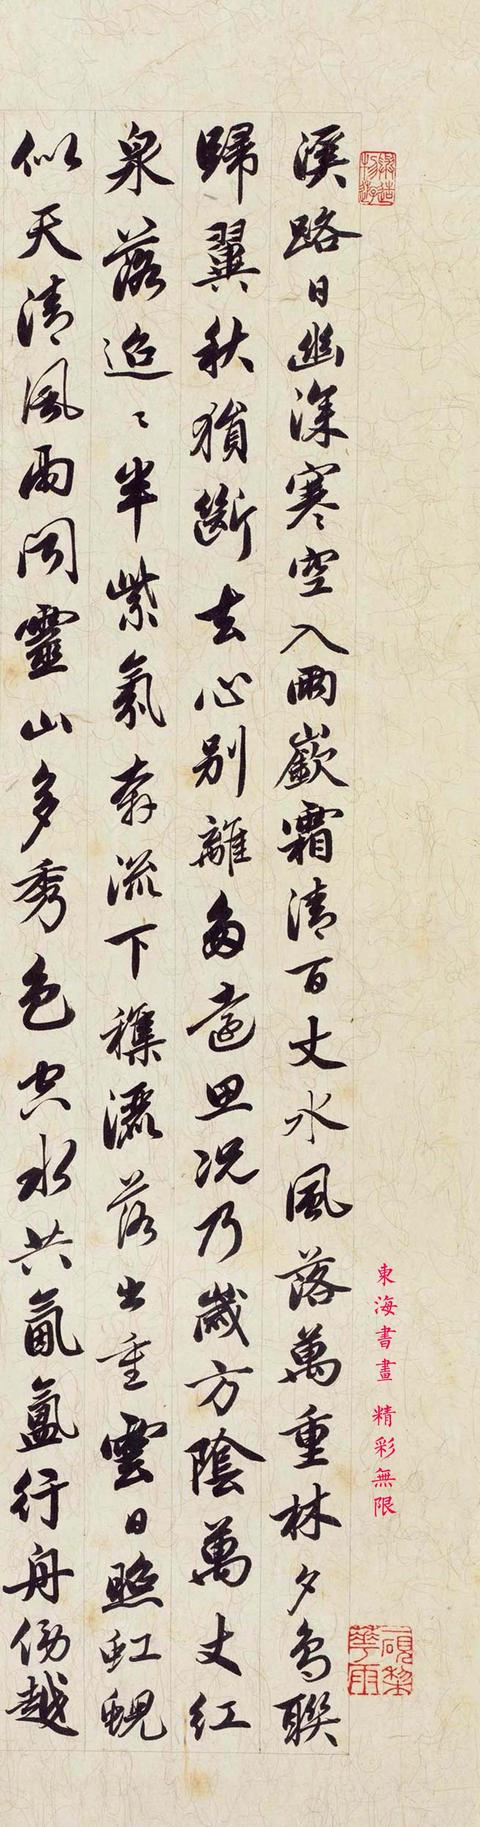 東海書畫 精彩無限
溪路日幽深寒空入兩嶔霜清百丈水風落萬重林夕鳥聯
歸翼秋猿斷去心別離多遠思況乃歲方陰萬丈紅
泉落迢々半紫氛奔流下襍灑落出重雲日照虹蜺
似天清風雨聞靈山多秀色空水共氤氳行舟傍越